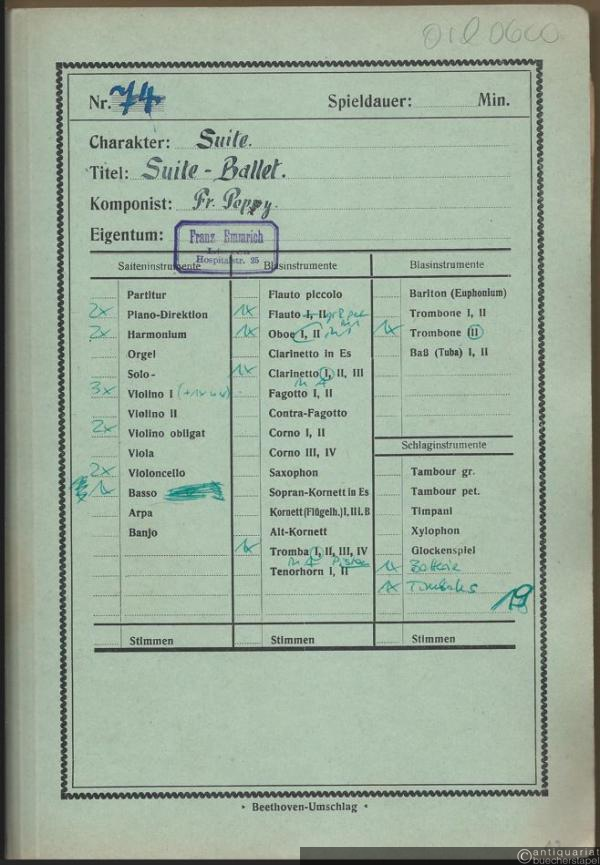 Nr. 74 Spieldauer: Min.
Charakter: Suite.
Titel: Suite - Ballet.
Komponist: Fr. Poppy.
Eigentum: Franz Emmrich
Hospitalstr. 25
Saiteninstrumente
Partitur
2x Piano-Direktion
2x Harmonium
Orgel
Solo-
3x Violino I
Violino II
2x Violino obligat
Viola
2x Violoncello
1x Basso
Arpa
Banjo
Stimmen
Blasinstrumente
Flauto piccolo
1x Flauto I, II
1x Oboe I, II
Clarinetto in Es
1x Clarinetto I, II, III
in A
Fagotto I, II
Contra-Fagotto
Corno I, II
Corno III, IV
Saxophon
Sopran-Kornett in Es
Kornett (Flügelh.) I, II i. B
Alt-Kornett
1x Tromba I, II, III, IV
in A Piston
Tenorhorn I, II
Stimmen
Blasinstrumente
Bariton (Euphonium)
Trombone I, II
1x Trombone III
Baß (Tuba) I, II
Schlaginstrumente
Tambour gr.
Tambour pet.
Timpani
Xylophon
Glockenspiel
1x Batterie
1x Timbales
19
Stimmen
* Beethoven-Umschlag *
©antiquariat
buecherstapel